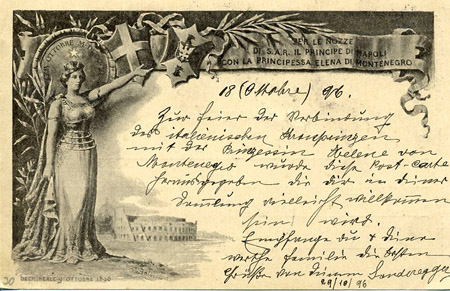 OTTOBRE
PER LE NOZZE
DI S.A.R. IL PRINCIPE DI NAPOLI
CON LA PRINCIPESSA ELENA DI MONTENEGRO
18 (Ottobre) 96.
Zur Feier der Verbindung
des italienischen Kronprinzen
mit der Prinzessin Helene von
Montenegro wurde diese Post-carte
herausgegeben die dir in deiner
Samlung vielleicht willkommen
sein wird
Empfange du & deine
werthe Familie die besten
Grüße von deinem Sonderegger
29/10/96
30 DECR. REALE OTTOBRE 1896